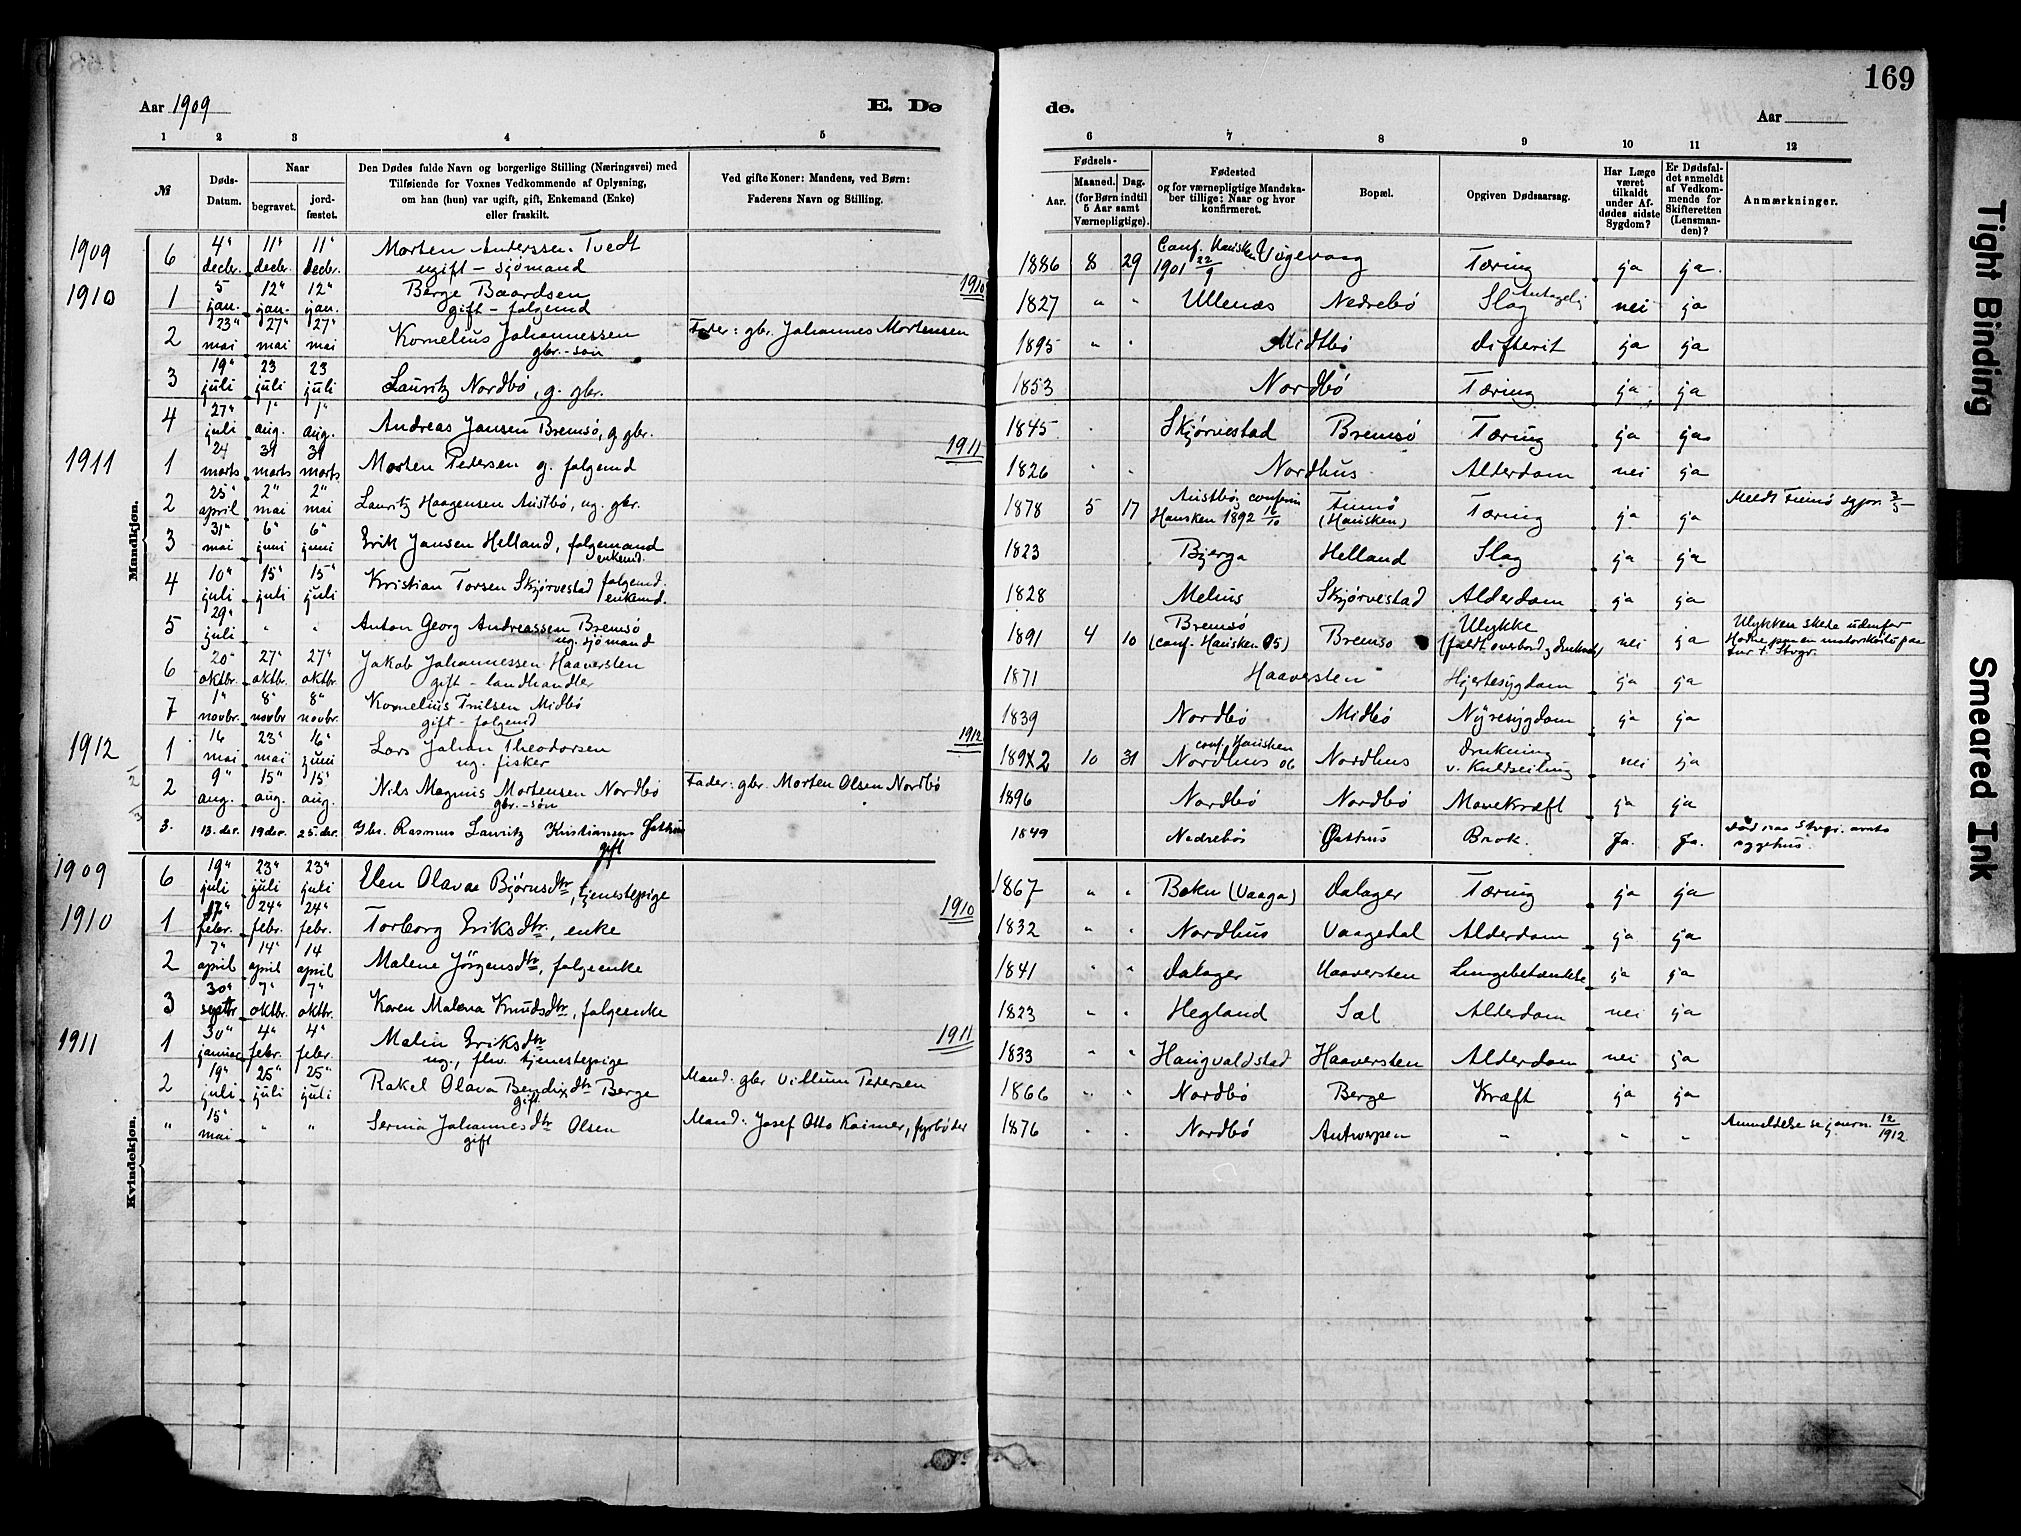 169
Aar 1909
E. Dø
de.
Aar
1 2 3 4 5 6 7 8 9 10 11 12
№
Døds-
Datum.
Naar
begravet.
jord-
fæstet.
Den Dødes fulde Navn og borgerlige Stilling (Næringsvei) med
Tilføiende for Voxnes Vedkommende af Oplysning,
om han (hun) var ugift, gift, Enkemand (Enke)
eller fraskilt.
Ved gifte Koner: Mandens, ved Børn:
Faderens Navn og Stilling.
Fødsels-
Aar.
Maaned. Dag.
(for Børn indtil
5 Aar samt
Værnepligtige).
Fødested
og for værnepligtige Mandska-
ber tillige: Naar og hvor
konfirmeret.
Bopæl.
Opgiven Dødsaarsag.
Har Læge
været
tilkaldt
under Af-
dødes sidste
Sygdom?
Er Dødsfal-
det anmeldt
af Vedkom-
mende for
Skifteretten
(Lensman-
den)?
Anmærkninger.
Mandkjøn.
1909 6 4" decbr. 11" decbr. 11" decbr. Morten Anderssen Tvedt ugift - sjømand 1886 8 29 Conf. Hausken 1901 22/9 Vågevaag Tæring ja ja.
1910 1 5 jan. 12" jan. 12" jan. Berge Baardsen gift - folgemd 1910 1827 " " Ullenæs Nedrebø Slag Antagelig nei ja
2 23" mai 27" mai 27" mai Kornelius Johannessen gbr.-søn Fader: gbr. Johannes Mortensen 1895 " " Midtbø difterit ja ja
3 19" juli 23 juli 23 juli Lauritz Nordbø, g. gbr. 1853 Nordbø Tæring ja ja
4 27" juli 1" aug. 1" aug. Andreas Jansen Bremsø, g gbr. 1845 Skjørvestad Bremsø Tæring ja ja
1911 1 24 marts 31 marts 31 marts Morten Pedersen g. folgemd 1911 1826 " " Nordhus Alderdom nei ja
2 25" april 2" mai 2" mai Lauritz Haagensen Austbø, ug. gbr. 1878 5 17 Austbø, confirm Hausken 1892 16/10 Finnø (Hausken) Tæring ja ja Meldt Finnø sgpr. 3/5
3 31" mai 6" juni 6" juni Erik Jansen Helland, folgemand enkemd. 1823 Bjerga Helland Slag ja ja
4 10" juli 15" juli 15" juli Kristian Torsen Skjørvestad folgemd. enkemd. 1828 Melhus Skjørvestad Alderdom ja ja
5 29" juli " " Anton Georg Andreassen Bremsø ug. sjømand 1891 4 10 Bremsø (conf. Hausken 05) Bremsø Ulykke (faldt overbord og druknet) nei ja Ulykken skete udenfor
6 20" oktbr. 27" oktbr. 27" oktbr. Jakob Johannessen Haaversten gift - landhandler 1871 Haaversten Hjertesygdom ja ja
7 1" novbr. 8" novbr 8" novbr. Kornelius Truilsen Midbø gift - folgemd 1839 Nordbø Midbø Nyresygdom ja ja
1912 1 16 mai 23" mai 16" juni Lars Johan Theodorsen ug. fisker 1912 189x2 10 31 conf. Hausken Nordhus 06 Nordhus Drukning v. Kuldseiling nei ja
2 9" aug. 15" aug. 15" aug. Nils Magnus Mortensen Nordbø gbr.-søn Fader: gbr. Morten Olsen Nordbø 1896 Nordbø Nordbø Mavekræft ja ja
3. 13. der. 19 der. 25. der. Gbr. Rasmus Lauritz Kristiansen Østhus gift 1849 Nedrebø Østhus Brok. Ja. Ja. død paa Stvgr. amts sygehus.
Kvindekjøn.
1909 6 19" juli 23" juli 23" juli Elen Olava Bjørnsdtr., tjenestepige 1867 " " Bokn (Vaaga) Dalager Tæring ja ja
1910 1 17" febr. 24" febr. 24" febr. Torborg Eriksdtr., enke 1910 1832 " " Nordhus Vaagedal Alderdom ja ja
2 7" april 14" april 14 april Malene Jörgensdtr, folgeenke 1841 " " Dalager Haaversten Lungebetændelse ja ja
3 30" septbr 7" oktbr. 7" oktbr. Karen Malena Knudsdtr, folgeenke 1823 " " Hegland Sæl Alderdom nei ja
1911 1 30" januar 4" febr. 4" febr. Malin Eriksdtr ug., fhv. tjenestepige 1911 1833 " " Haugvaldstad Haaversten Alderdom nei ja
2 19" juli 25" juli 25" juli Rakel Olava Bendixdtr Berge gift Mand: gbr Villum Pedersen 1866 " " Nordbø Berge Kræft ja ja
" 15" mai " " Serina Johannesdtr Olsen gift Mand: Josef Otto Kaimer, fyrbøder 1876 " " Nordbø Antwerpen " " " Anmeldelse se journ. 12/1912
Tight Binding
Smeared Ink